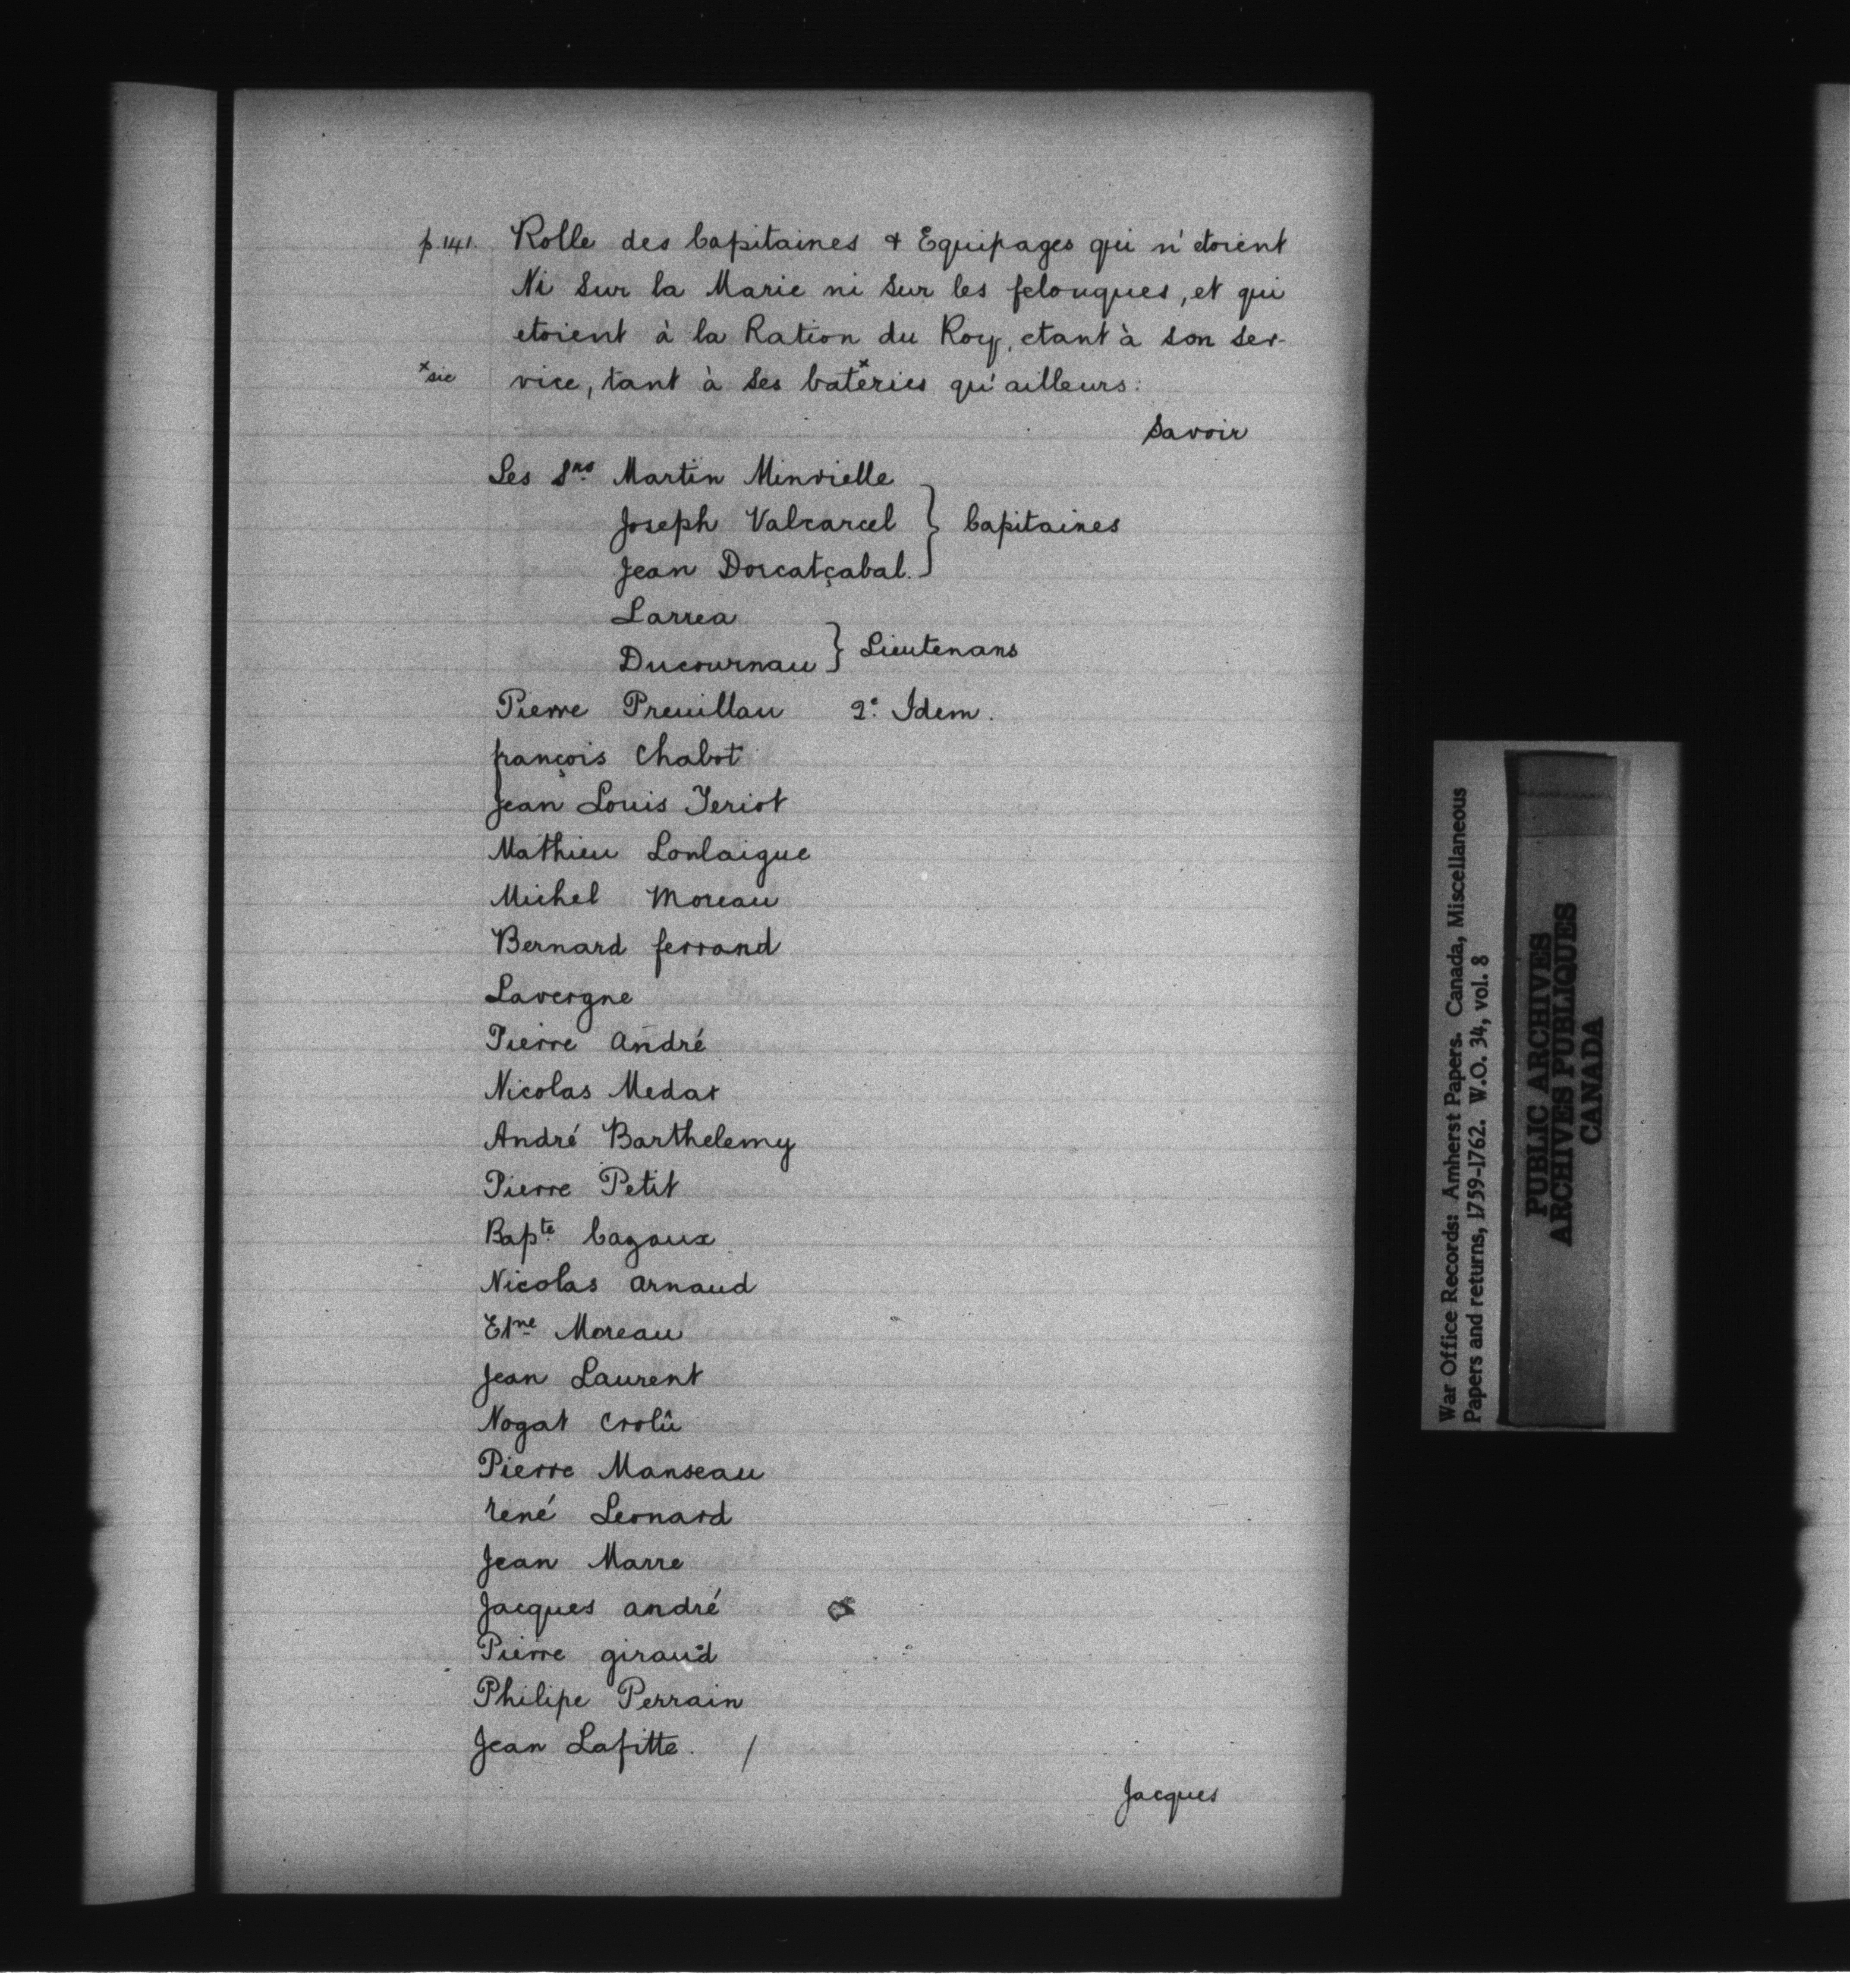 p. 141. Rolle des Capitaines & Equipages qui n'etoient
Ni Sur la Marie ni Sur les felouques, et qui
etoient à la Ration du Roy, etant à son ser-
x sic vice, tant à Ses batteries x qu'ailleurs:
Savoir
Les Srs Martin Minvielle
Joseph Valcarcel } Capitaines
Jean Dorcatçabal.
Larrea
Ducournau } Lieutenans
Pierre Preuillau 2e Idem.
françois Chabot
Jean Louis Teriot
Mathieu Lonlaigue
Michel Moreau
Bernard ferrand
Lavergne
Pierre André
Nicolas Medar
André Barthelemy
Pierre Petit
Bapte Cazaux
Nicolas Arnaud
Etne Moreau
Jean Laurent
Nogat Crolû
Pierre Manseau
René Leonard
Jean Marre
Jacques André
Pierre giraud
Philipe Perrain
Jean Lafitte. /
Jacques
War Office Records: Amherst Papers. Canada, Miscellaneous
Papers and returns, 1759-1762. W.O. 34, vol. 8
PUBLIC ARCHIVES
ARCHIVES PUBLIQUES
CANADA